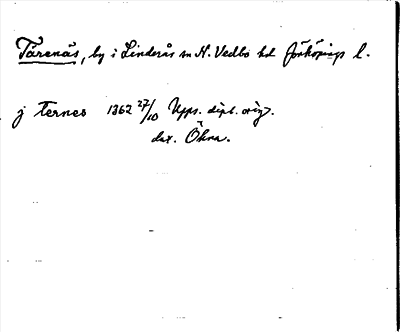 Tärenäs, by i Linderås sn N. Vedbo hd Jönköpings l.
j Ternes 1362 27/10 Upps. dipl. orig.
dat. Öhra.